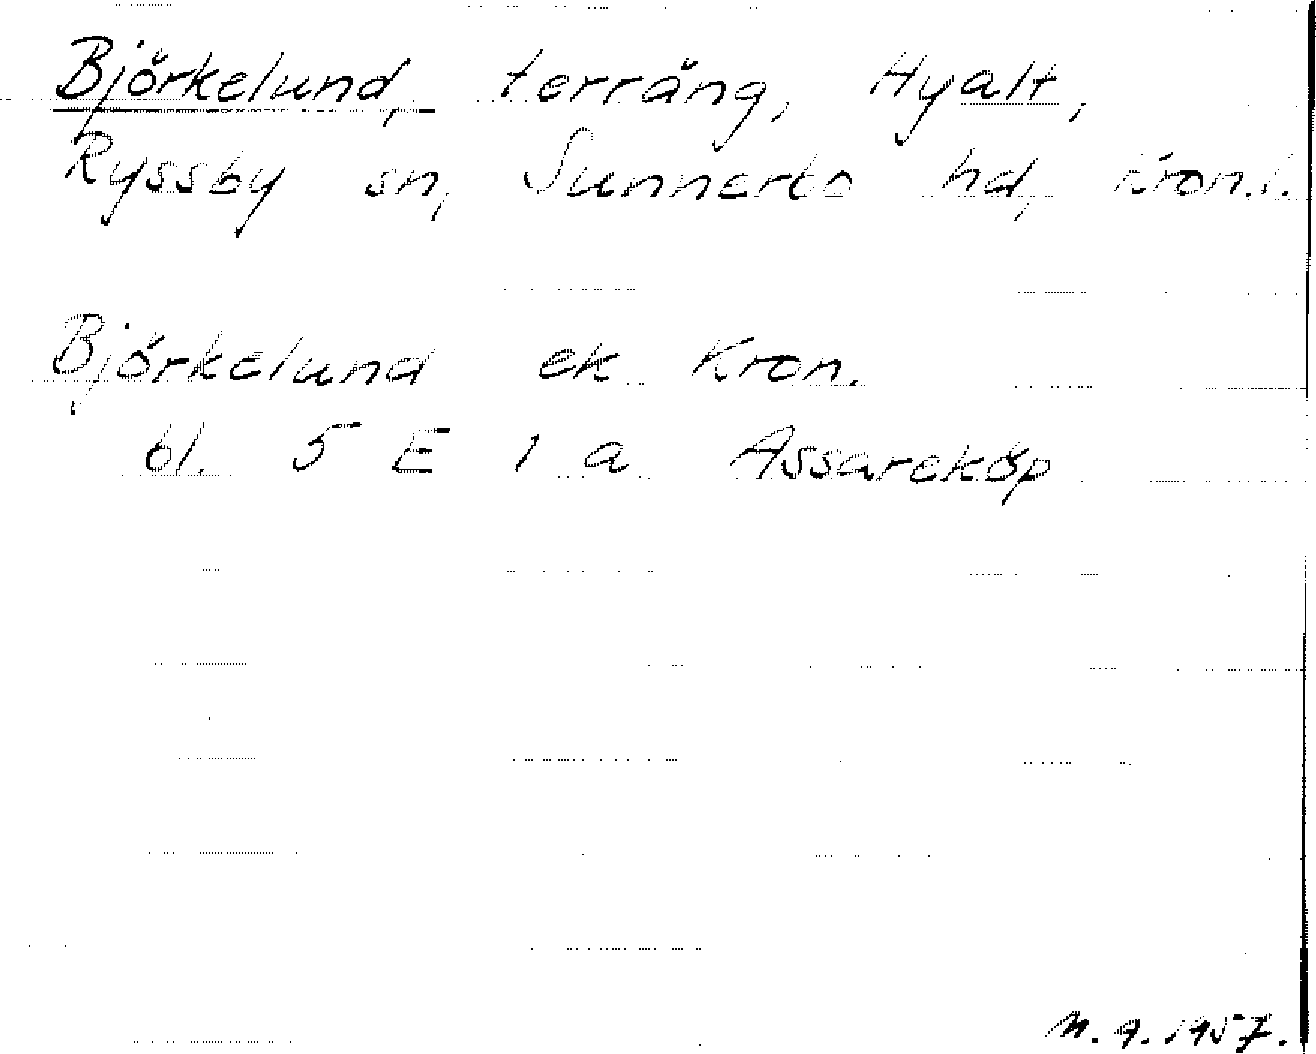 Björkelund, terräng, Hyalt,
Ryssby sn, Sunnerbo hd, Kron.l.
Björkelund ek Kron.
bl. 5 E 1 a Assareköp
1957.